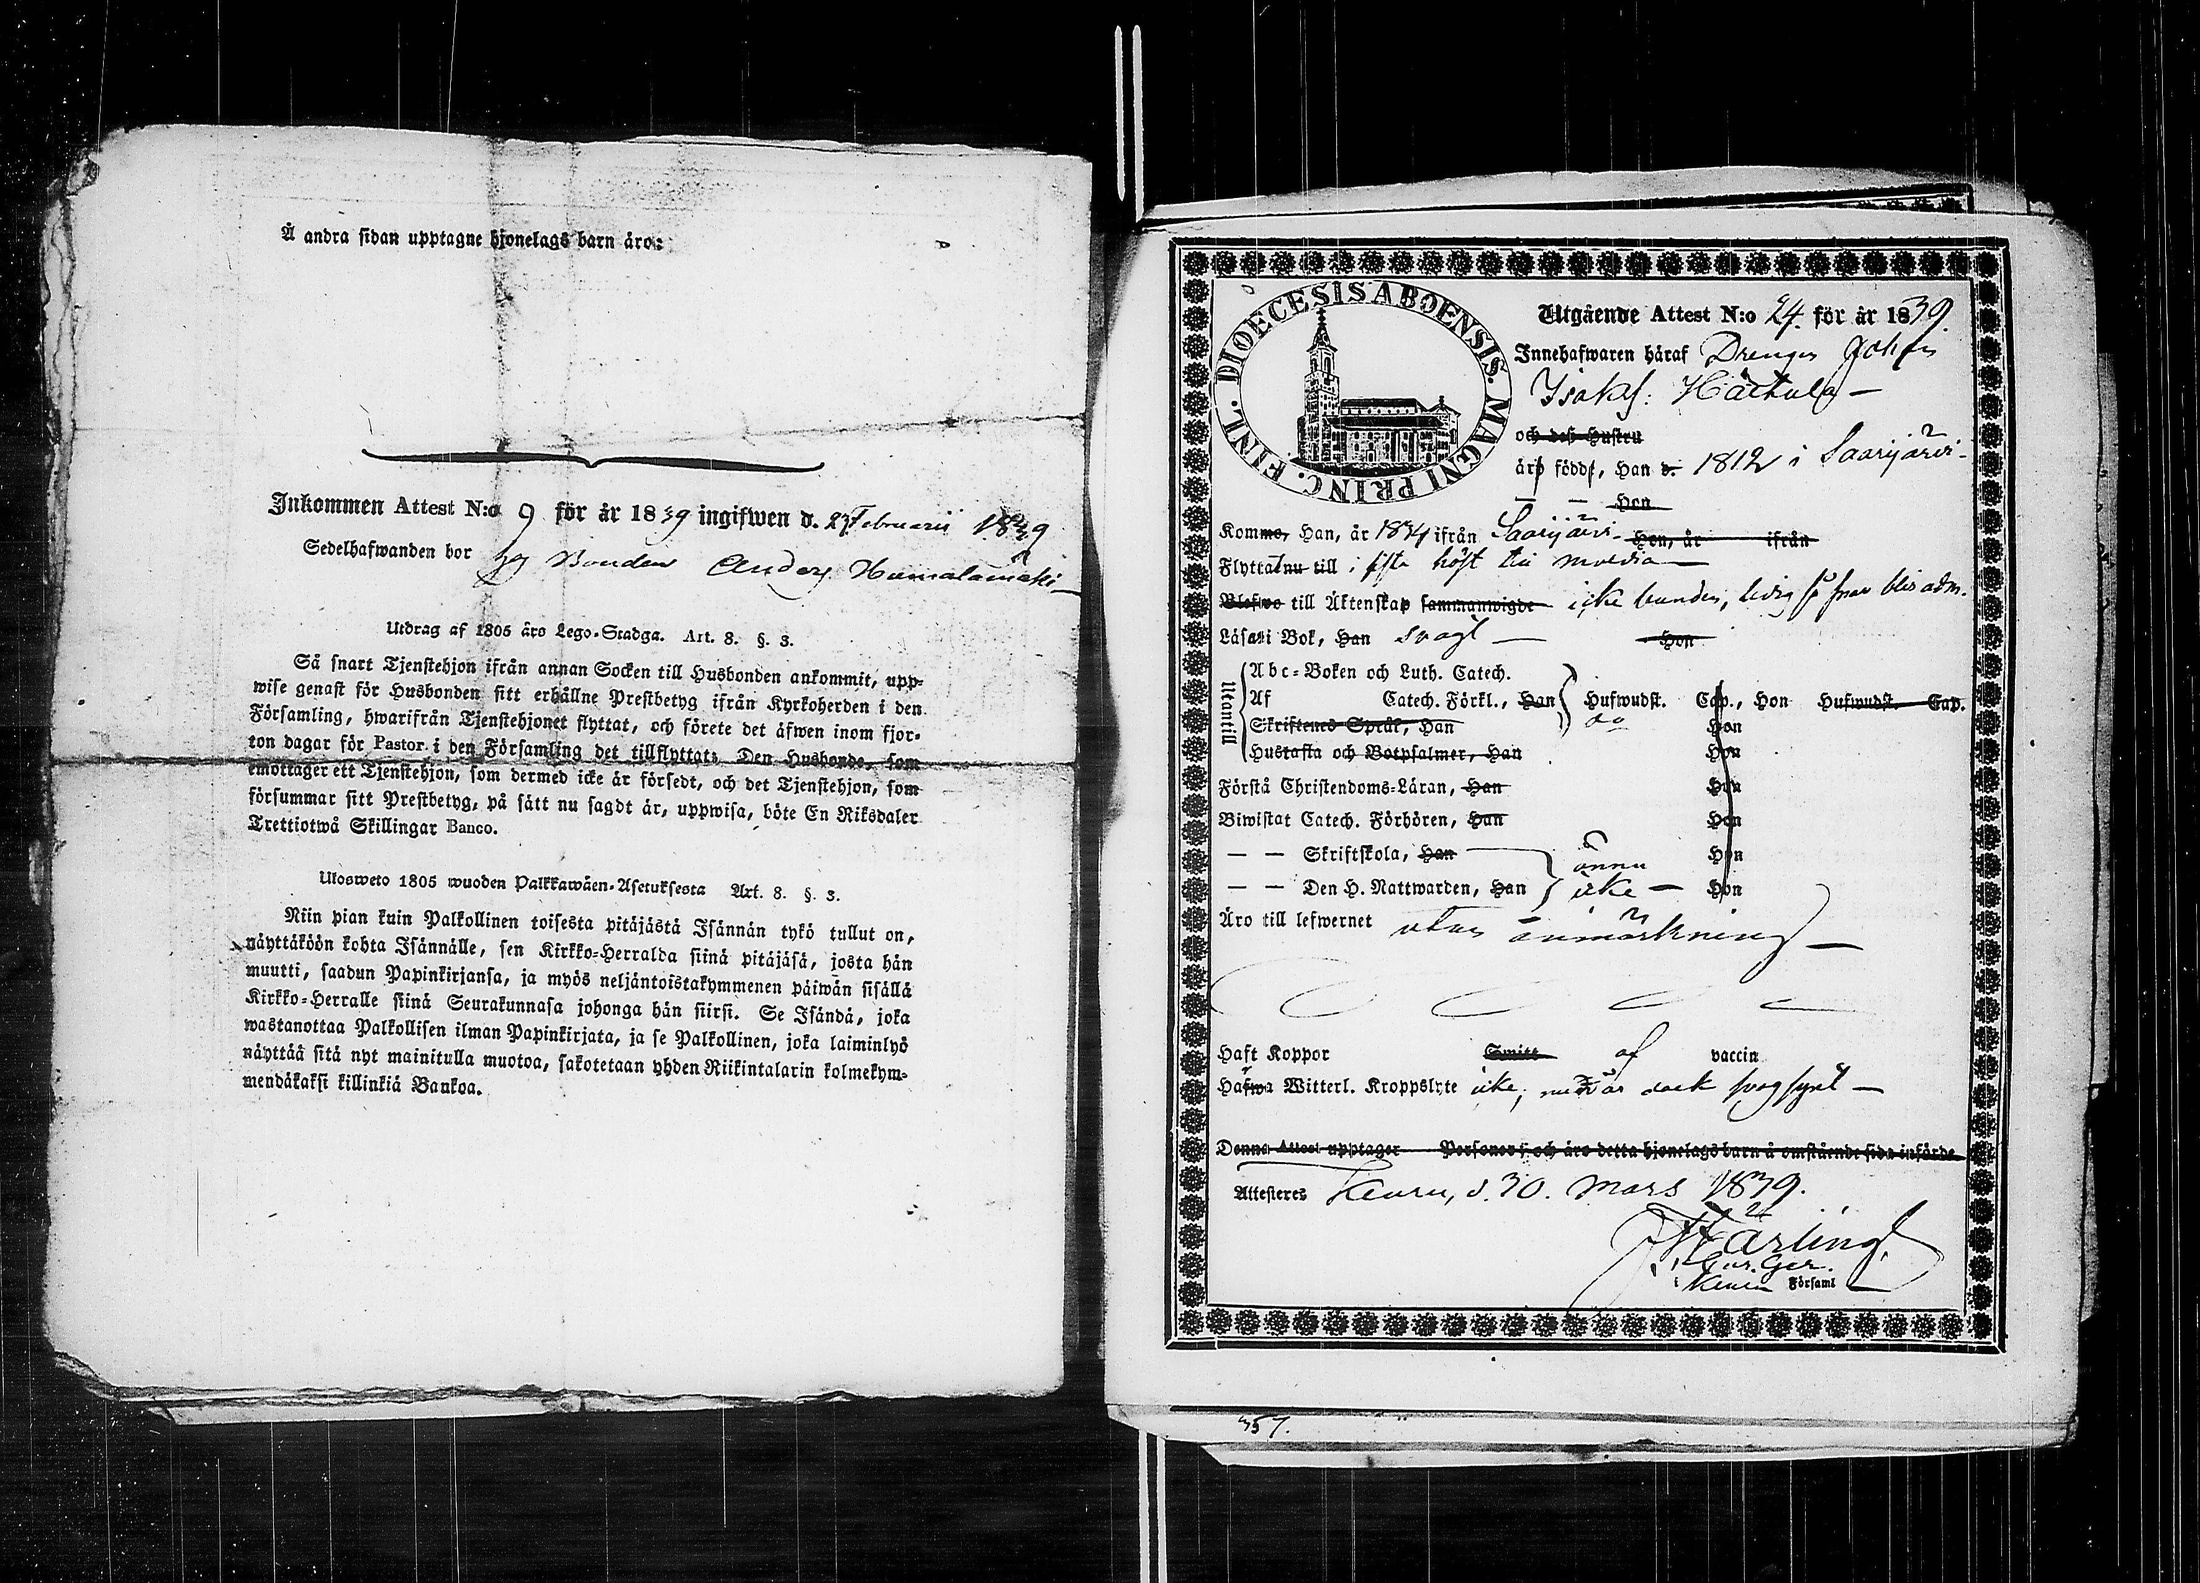 Å andra sidan upptagne hjonelags barn äro:
Inkommen Attest N:o 9 för år 1839 ingifwen d. 27 Februarii 1839
Sedelhafwanden bor hos Bonden Anders Humalamäki
Utdrag af 1805 års Lego-Stadga. Art. 8. §. 3.
Så snart Tjenstehjon ifrån annan Socken till Husbonden ankommit, upp-
wise genast för Husbonden sitt erhållne Prestbetyg ifrån Kyrkoherden i den
Församling, hwarifrån Tjenstehjonet flyttat, och förete det äfwen inom fjor-
ton dagar för Pastor i den Församling det tillflyttat. Den Husbonde, som
emottager ett Tjenstehjon, som dermed icke är försedt, och det Tjenstehjon, som
försummar sitt Prestbetyg, på sätt nu sagdt är, uppwisa, böte En Riksdaler
Trettiotwå Skillingar Banco.
Ulosweto 1805 wuoden Palkkawäen-Asetuksesta Art. 8. §. 3.
Niin pian kuin Palkollinen toisesta pitäjästä Isännän tykö tullut on,
näyttäköön kohta Isännälle, sen Kirkko-Herralda siinä pitäjäsä, josta hän
muutti, saadun Papinkirjansa, ja myös neljäntoistakymmenen päiwän sisällä
Kirkko-Herralle siinä Seurakunnasa johonga hän siirsi. Se Isändä, joka
wastanottaa Palkollisen ilman Papinkirjata, ja se Palkollinen, joka laiminlyö
näyttää sitä nyt mainitulla muotoa, sakotetaan yhden Riikintalarin kolmekym-
mendäkaksi killinkiä Bankoa.
DIOECESIS ABOENSIS. MAGNI PRINC. FINL.
Utgående Attest N:o 24. för år 1839.
Innehafwaren häraf Drengen Johan
Isaks: Häckula
och dess Hustru
äro födde, Han d. 1812 i Saarijärvi
— — Hon
Komne, Han, år 1834 ifrån Saarijärvi Hon, år ifrån
Flyttat nu till i höst till
Blefwo till Äktenskap sammanwigde icke bunden, ledig så snart blir adm.
Läsa i Bok, Han svagt Hon
Utantill
Abc-Boken och Luth. Catech.
Af Catech. Förkl., Han Hufwudst. Cap., Hon Hufwudst. Cap.
Skriftenes Språk, Han Hon
Hustafla och Botpsalmer, Han Hon
Förstå Christendoms-Läran, Han Hon
Biwistat Catech. Förhören, Han Hon
— — Skriftskola, Han ännu Hon
— — Den H. Nattwarden, Han icke Hon
Äro till lefwernet utan anmärkning
Haft Koppor Smitt af vaccin
Hafwa Witterl. Kroppslyte icke, men är dock svagsynt
Denna Attest upptager Personer; och äro detta hjonelags barn å omstående sida införde.
Attesteres Keuru, d. 30. Mars 1839.
Wärling
Cur. Ger.
i Keuru Församl
357.